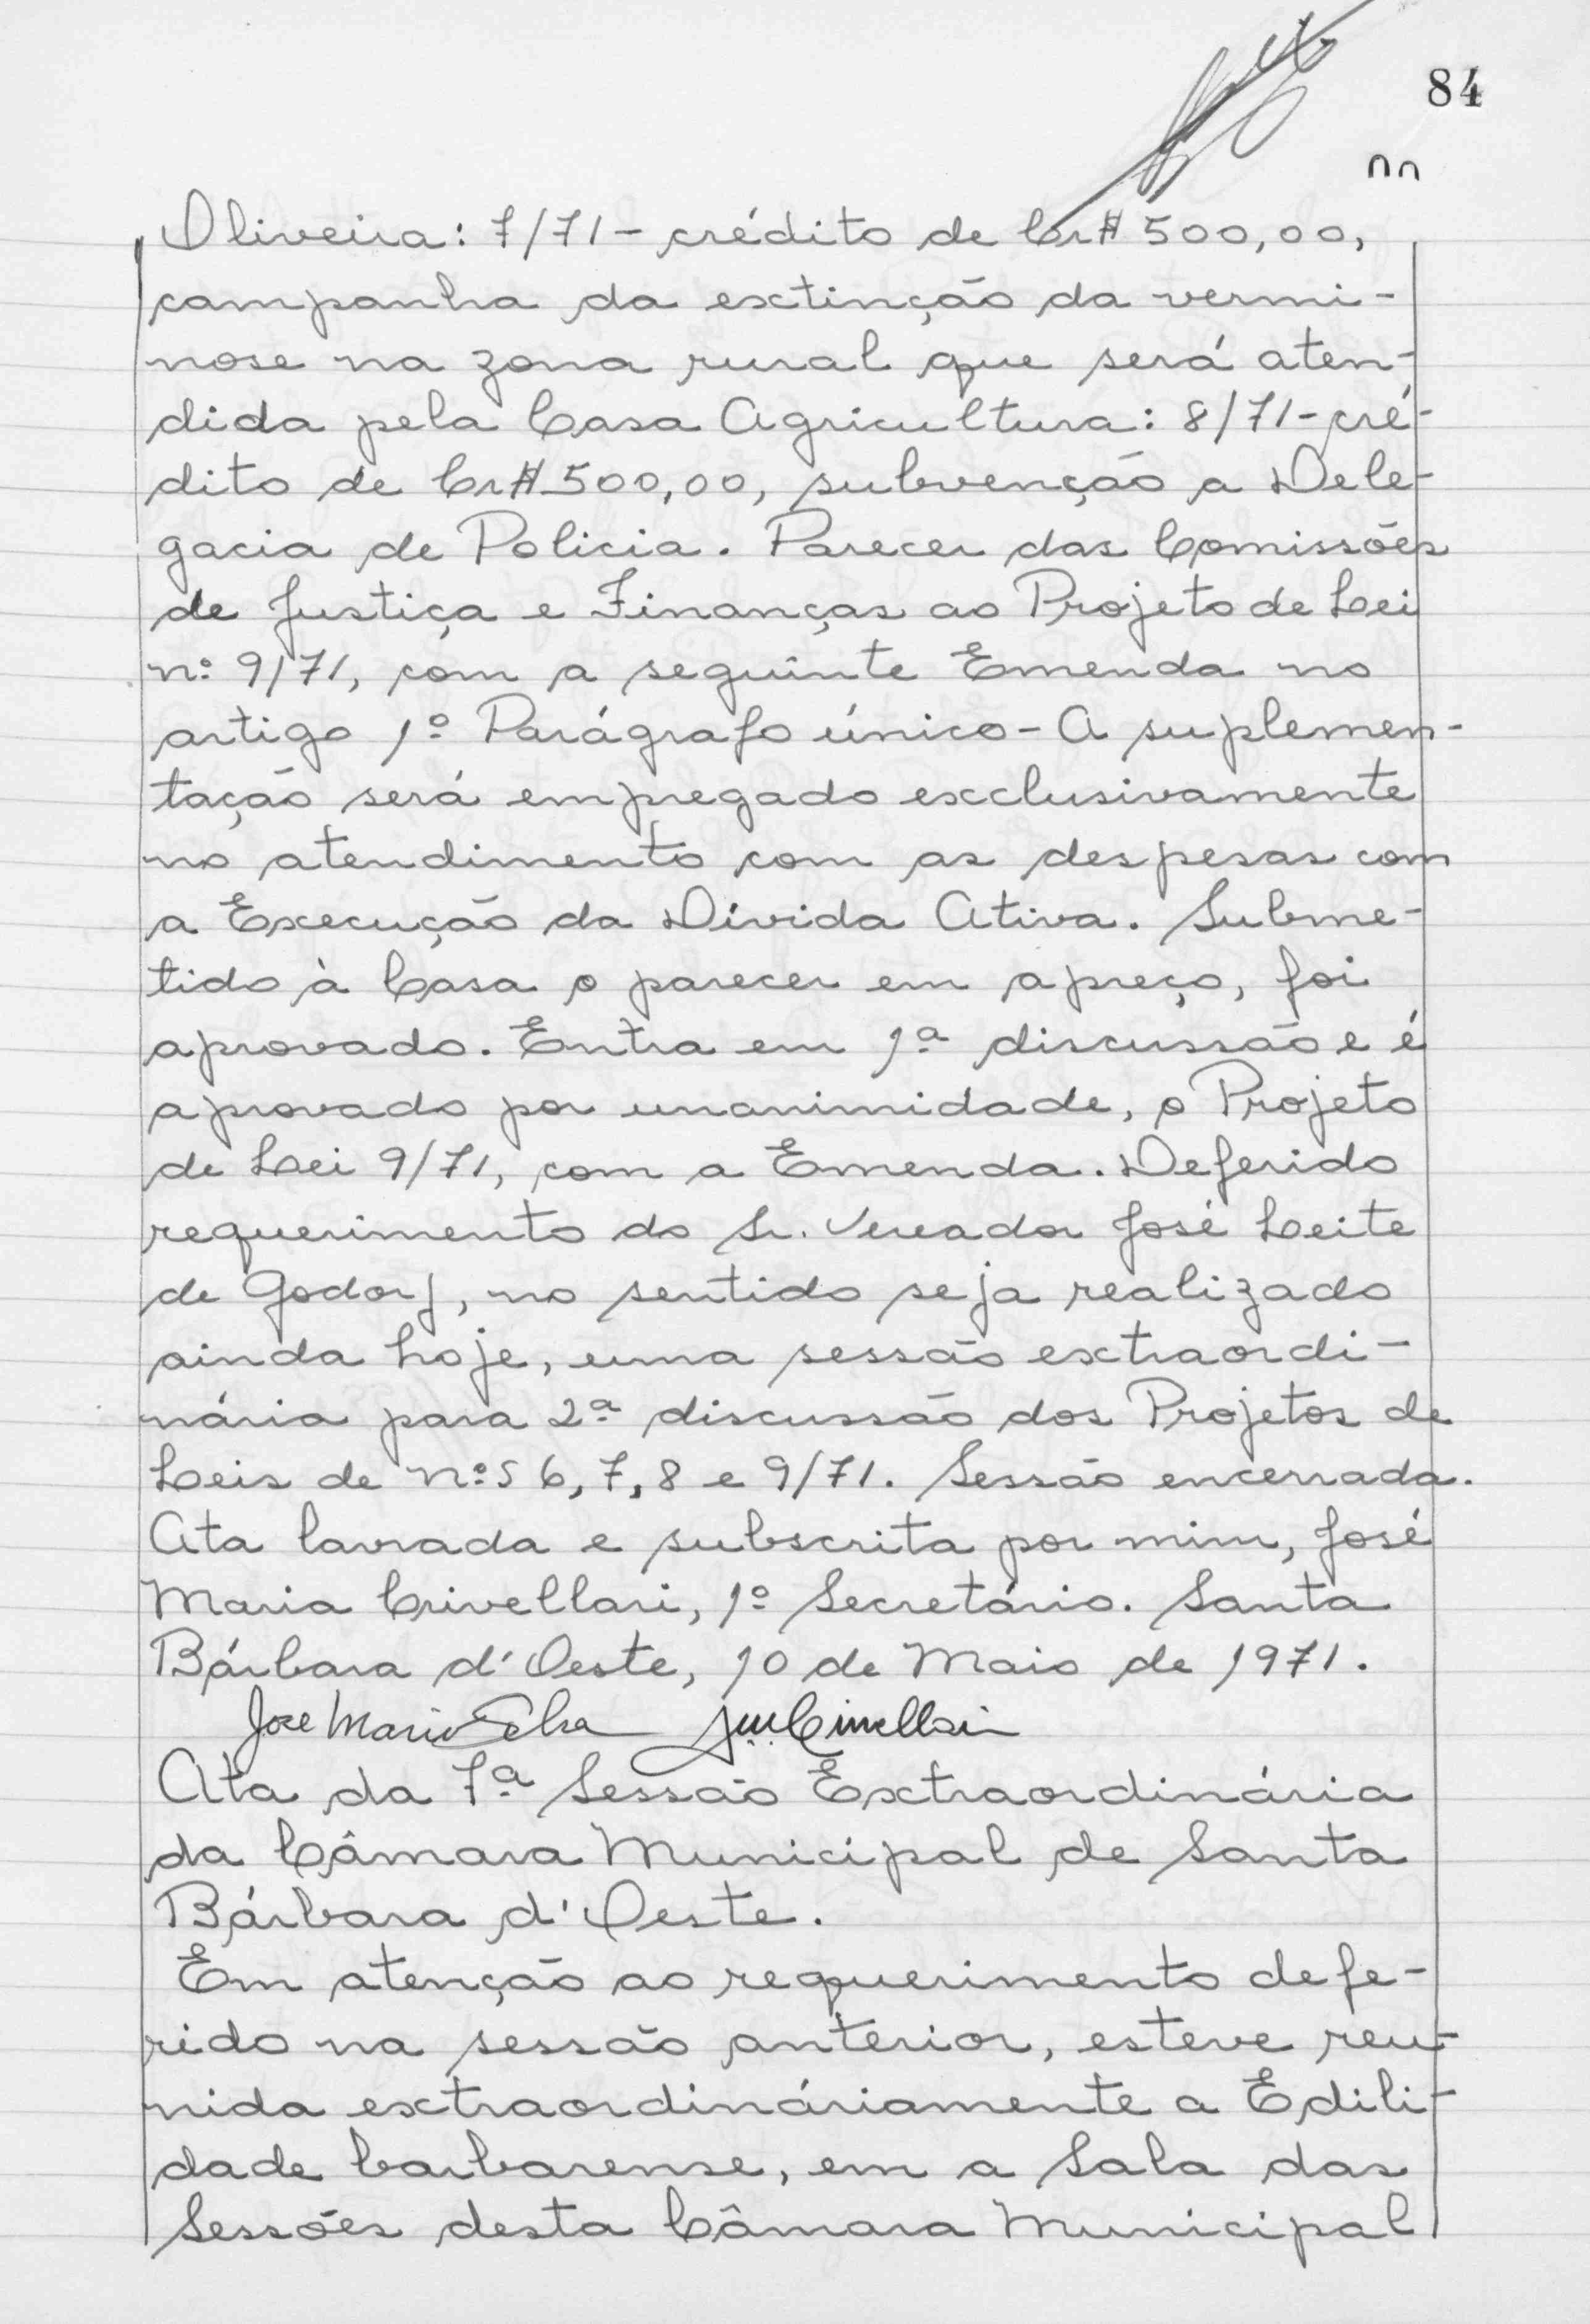 84
Oliveira: 7/71 - crédito de Cr$ 500,00,
campanha da extinção da vermi-
nose na zona rural que será aten-
dida pela Casa Agricultura: 8/71 - cré-
dito de Cr$ 500,00, subvenção a Dele-
gacia de Policia. Parecer das Comissões
de Justiça e Finanças ao Projeto de Lei
nº 9/71, com a seguinte Emenda no
artigo 1º Parágrafo único - A suplemen-
tação será empregado exclusivamente
no atendimento com as despesas com
a Execução da Dívida Ativa. Subme-
tido à Casa o parecer em apreço, foi
aprovado. Entra em 1ª discussão e é
aprovado por unanimidade, o Projeto
de Lei 9/71, com a Emenda. Deferido
requerimento do Sr. Vereador José Leite
de Godoy, no sentido seja realizado
ainda hoje, uma sessão extraordi-
nária para 2ª discussão dos Projetos de
Leis de nºs 6, 7, 8 e 9/71. Sessão encerrada.
Ata lavrada e subscrita por mim, José
Maria Crivellari, 1º Secretário. Santa
Bárbara d'Oeste, 10 de Maio de 1971.
Ata da 7ª Sessão Extraordinária
da Câmara Municipal de Santa
Bárbara d'Oeste.
Em atenção ao requerimento defe-
rido na sessão anterior, esteve reu-
nida extraordináriamente a Edili-
dade barbarense, em a Sala das
Sessões desta Câmara Municipal